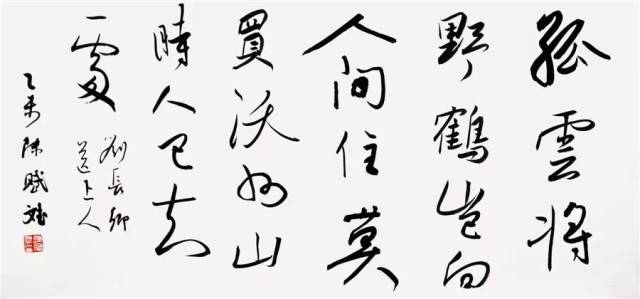 孤雲將
野鶴豈向
人間住莫
買沃洲山
時人已知
處
劉長卿
送上人
乙未陳賦